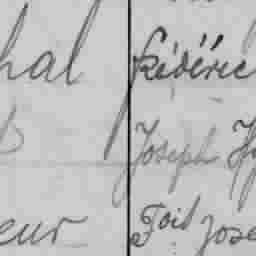 hal Frédéric
Joseph Hy
eur Foit Jose